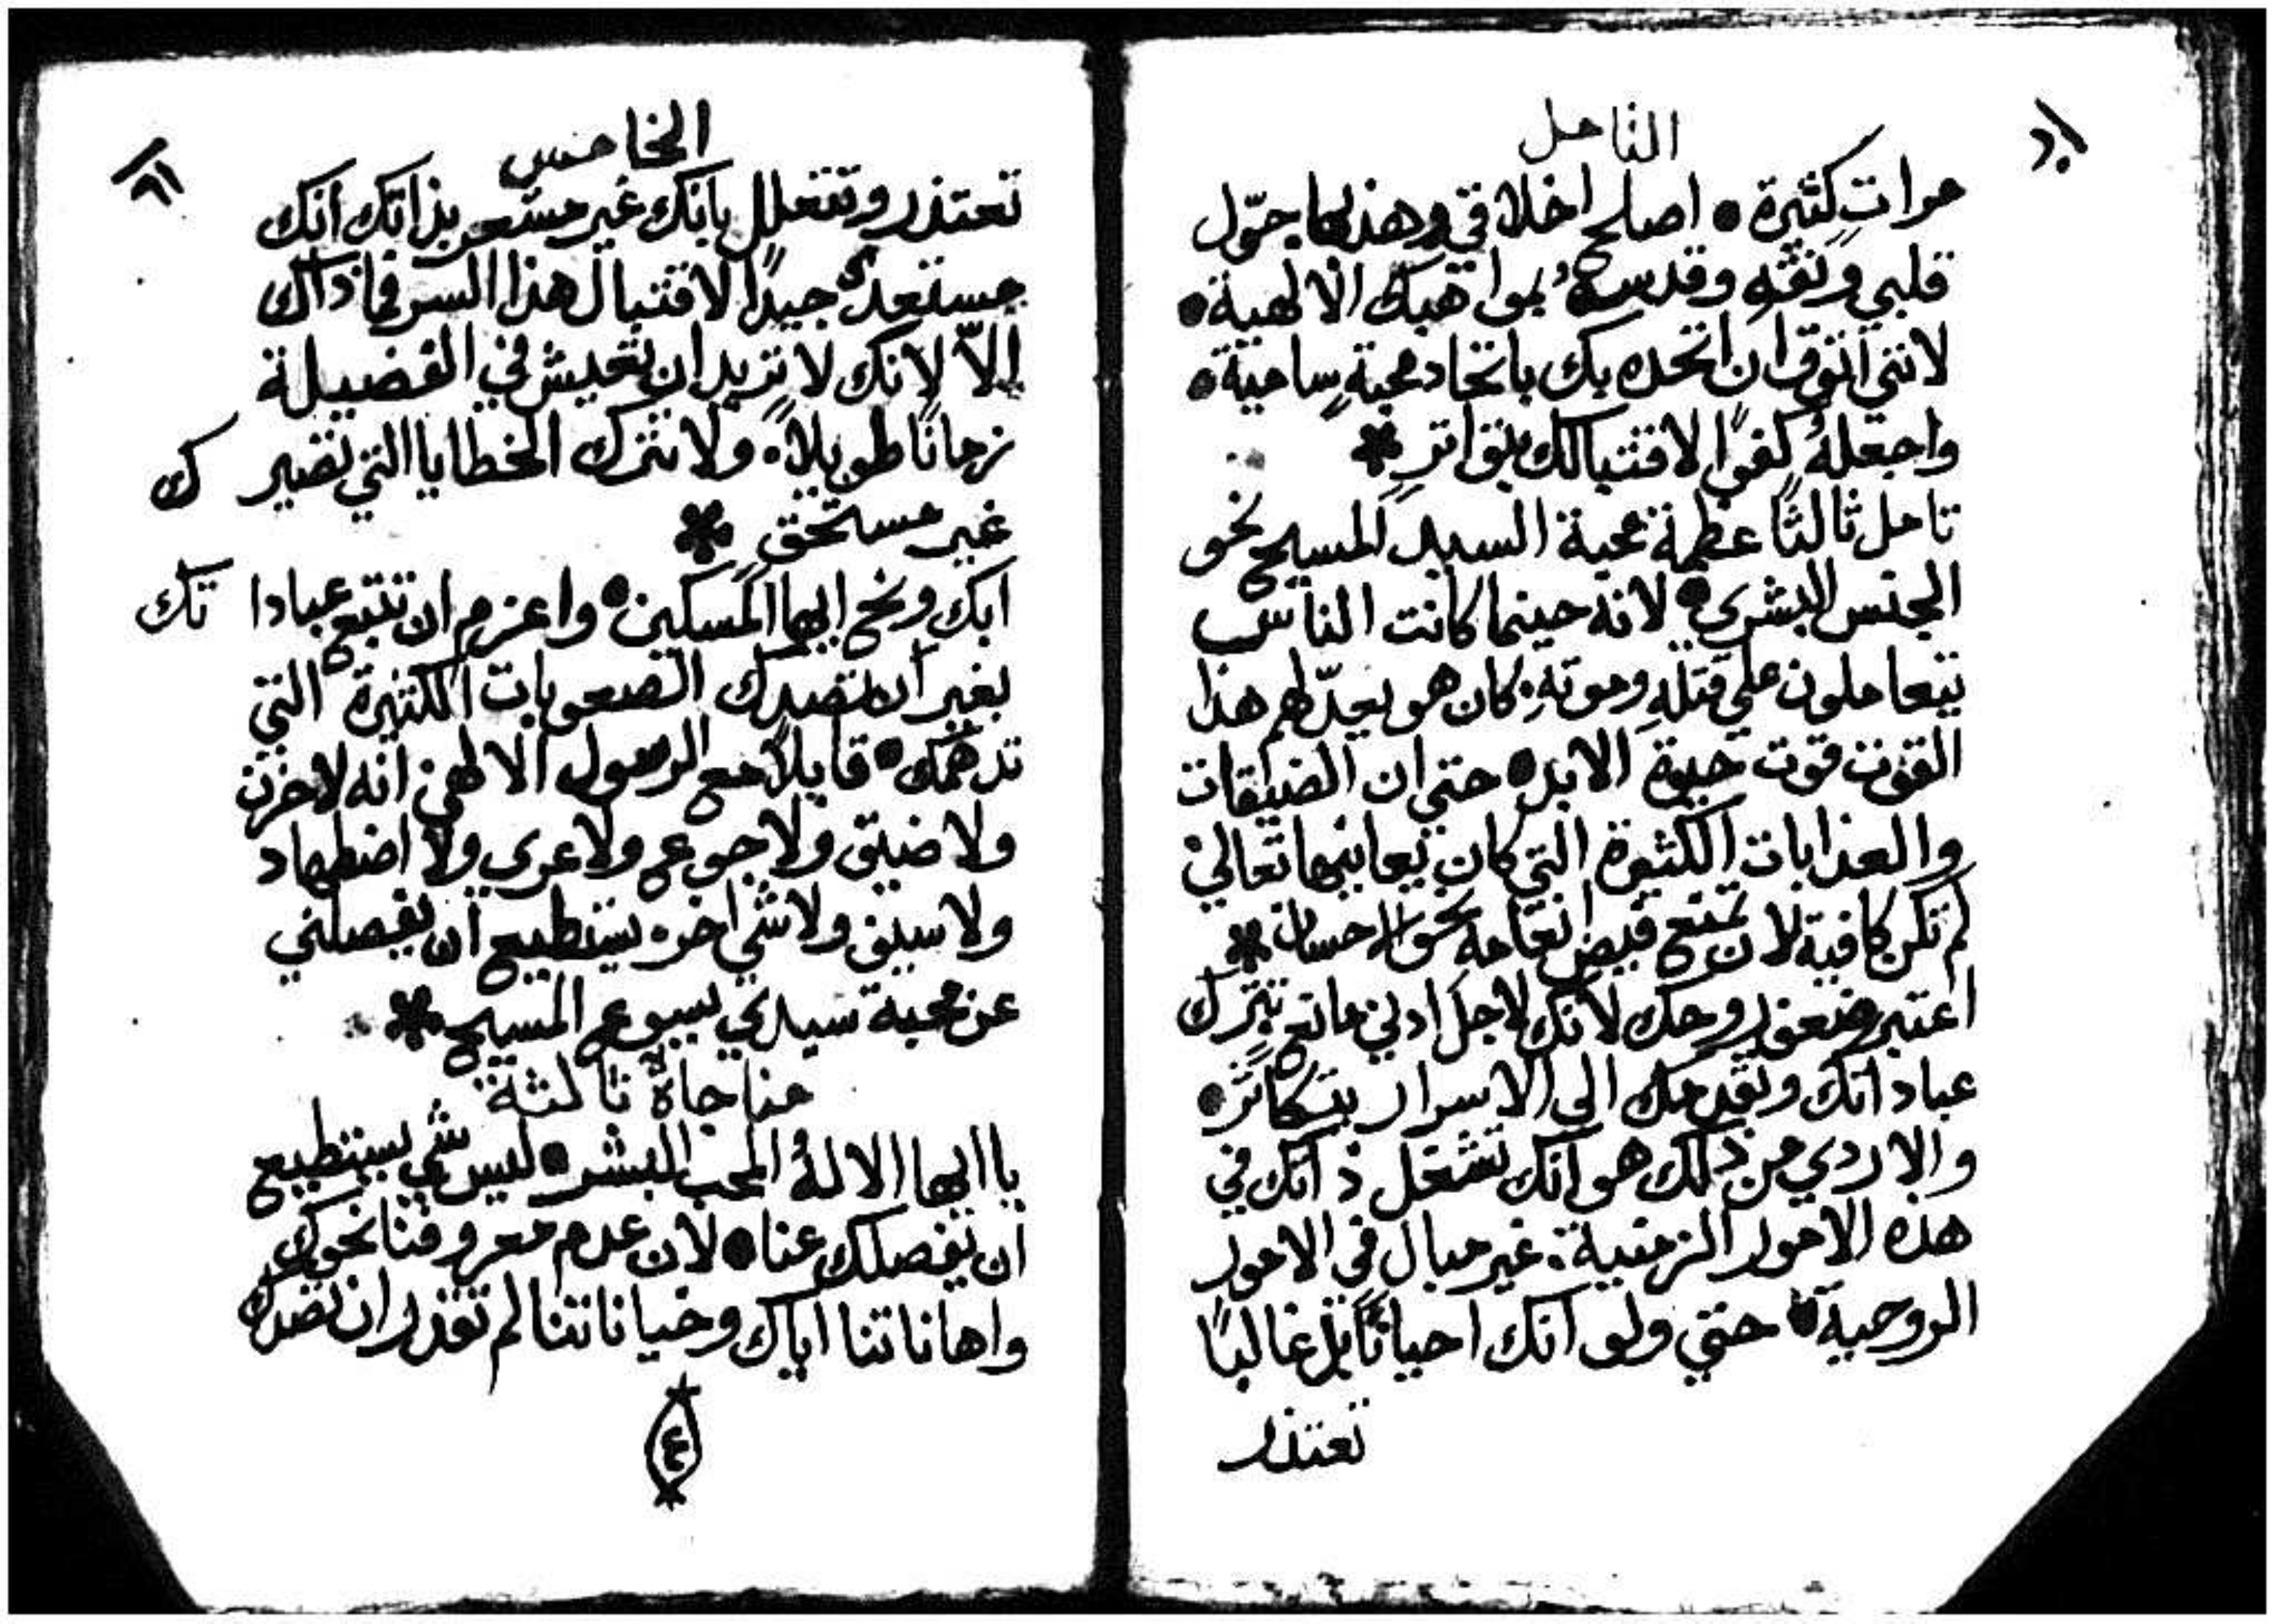 التامل
مرات كثيرة ٠ اصلح اخلاقي وهذبها حوّل
قلبي ونقّه وقدسهُ بمواهبك الالهية ٠
لانني اتوق ان اتحد بك باتحاد محبةٍ سامية ٠
واجعلهُ كفوًا لاقتبالك بتواترٍ *
تامل ثالثًا عظمة محبة السيد المسيح نحو
الجنس البشري ٠ لانه حينما كانت الناس
يتعاملون علي قتله وموته. كان هو يعدّ لهم هذا
القوت قوت حيوة الابد ٠ حتي ان الضيقات
والعذابات الكثيرة التي كان يعاينها تعالي
لم تكن كافية لان تمنع فيض انعامه نحو الاحسان *
اعتبر ضعف روحك لانك لاجل ادني مانع تترك
عباداتك وتقدمك الي الاسرار بتكاثر ٠
والاردي من ذلك هو انك تشغل ذاتك في
هذه الامور الزمنية. غير مبال في الامور
الروحية ٠ حتي ولو انك احيانًا بل غالبًا
تعتذر
الخامس
تعتذر وتتعلل بانك غير مستعد بذاتك انك
مستعد جيدًا لاقتبال هذا السر فما ذاك
الّا لانك لا تريد ان تعيش في الفضيلة
زمانًا طويلاً. ولا تترك الخطايا التي تصيرك
غير مستحق *
ابك ونح ايها المسكين ٠ واعزم ان تتبع عباداتك
بغير ان تصدك الصعوبات الكثيرة التي
تدهمك ٠ قايلاً مع الرسول الالهي انه لا حزن
ولا ضيق ولا جوع ولا عري ولا اضطهاد
ولا سيف ولا شي اخر. يستطيع ان يفصلني
عن محبة سيدي يسوع المسيح *
مناجاة ثالثة
يا ايها الالهُ المحب البشر ٠ ليس شي يستطيع
ان يفصلك عنا ٠ لان عدم معروفنا نحوك
واهاناتنا اياك وخياناتنا لم تقدر ان تصدك
٤